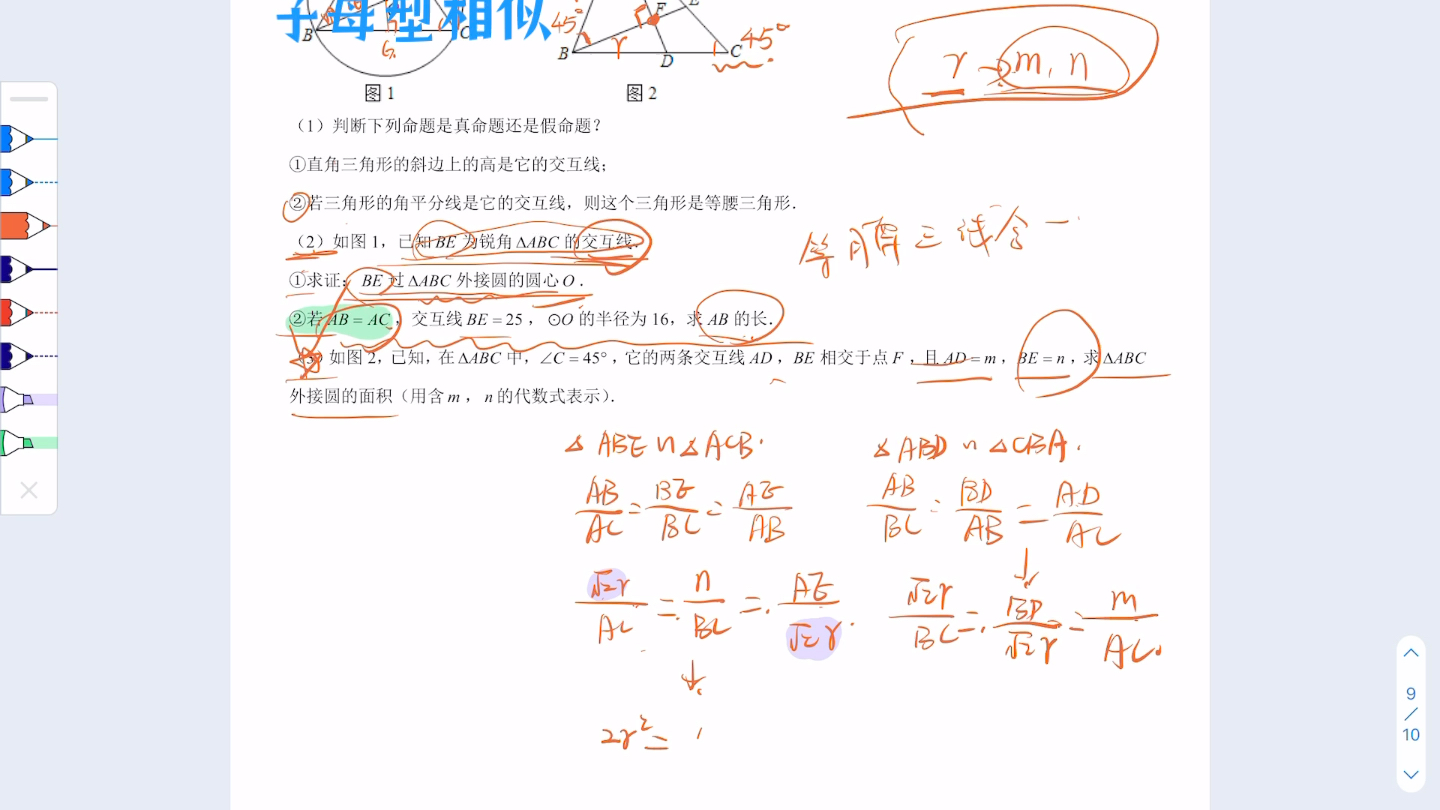 子母型相似
B 6 C
45° F E
B r D C 45°
图 1 图 2
r → m, n
（1）判断下列命题是真命题还是假命题？
①直角三角形的斜边上的高是它的交互线；
②若三角形的角平分线是它的交互线，则这个三角形是等腰三角形．
（2）如图 1，已知 BE 为锐角 ΔABC 的交互线．
等腰三线合一
①求证：BE 过 ΔABC 外接圆的圆心 O．
②若 AB = AC，交互线 BE = 25，⊙O 的半径为 16，求 AB 的长．
（3）如图 2，已知，在 ΔABC 中，∠C = 45°，它的两条交互线 AD，BE 相交于点 F，且 AD = m，BE = n，求 ΔABC
外接圆的面积（用含 m，n 的代数式表示）．
△ABE ∽ △ACB. △ABD ∽ △CBA.
AB/AC = BE/BC = AE/AB AB/BC = BD/AB = AD/AC
√2r/AC = n/BC = AE/√2r √2r/BC = BD/√2r = m/AC
↓ ↓
2r² =
9
10